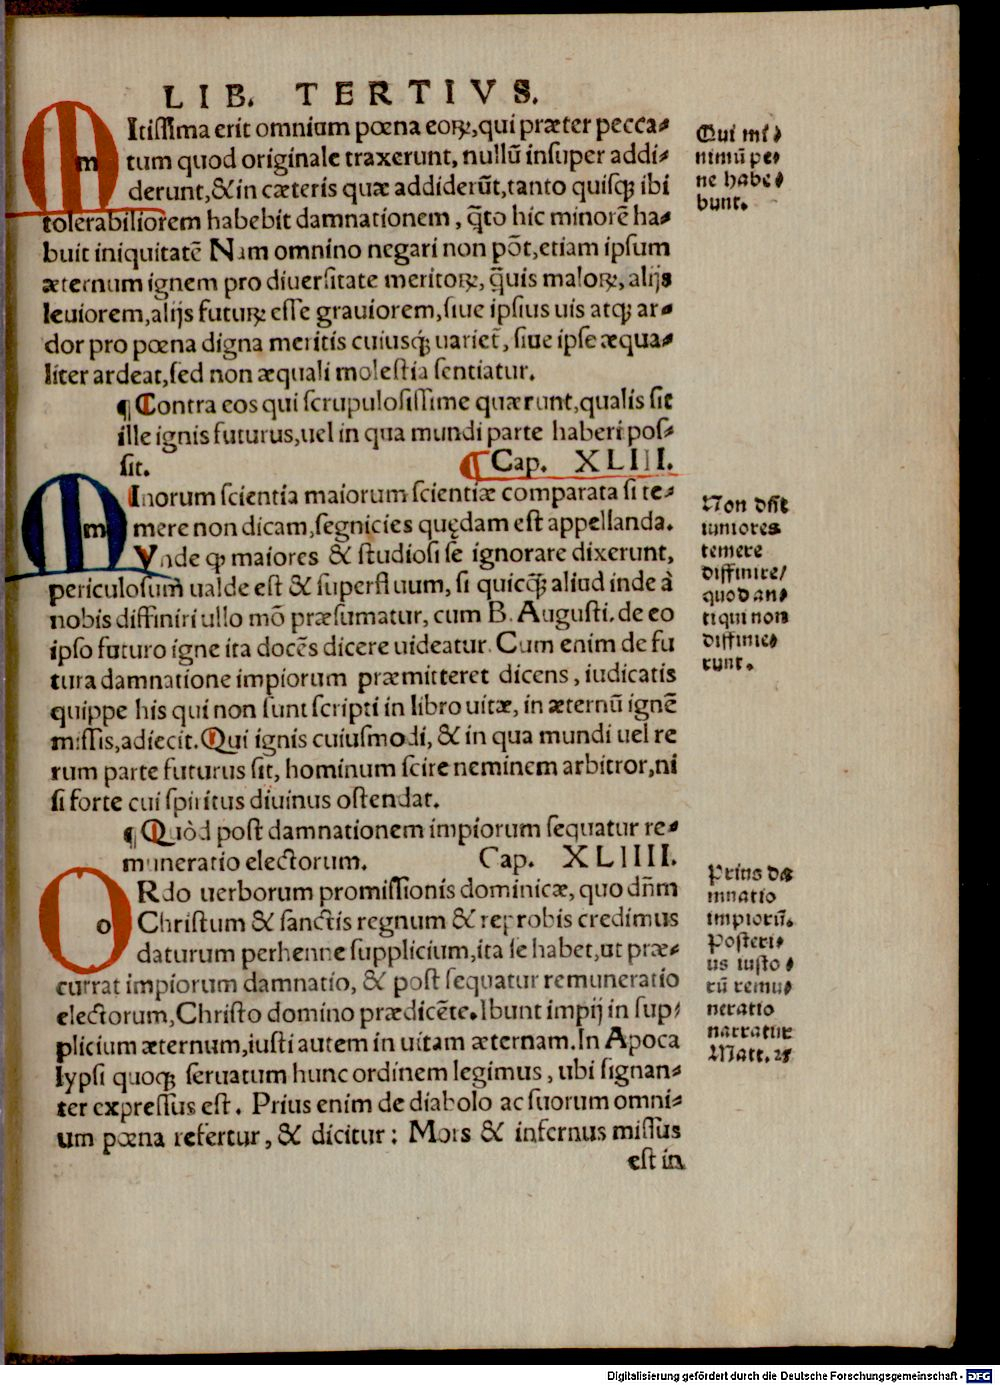 LIB. TERTIVS.
MItissima erit omnium pœna eoꝝ, qui præter pecca⸗
tum quod originale traxerunt, nullũ insuper addi⸗
derunt, & in cæteris quæ addiderũt, tanto quisq; ibi
tolerabiliorem habebit damnationem, q̃to hic minorẽ ha⸗
buit iniquitatẽ Nam omnino negari non põt, etiam ipsum
æternum ignem pro diuersitate meritoꝝ, q̃uis maloꝝ, alijs
leuiorem, alijs futuꝝ esse grauiorem, siue ipsius uis atq; ar⸗
dor pro pœna digna meritis cuiusq; uariet̃, siue ipse æqua⸗
liter ardeat, sed non æquali molestia sentiatur.
¶ Contra eos qui scrupulosissime quærunt, qualis sit
ille ignis futurus, uel in qua mundi parte haberi pos⸗
sit. ¶ Cap. XLIII.
MInorum scientia maiorum scientiæ comparata si te⸗
mere non dicam, segnicies quędam est appellanda.
Vnde ꝙ maiores & studiosi se ignorare dixerunt,
periculosum ualde est & superfluum, si quicq̃; aliud inde à
nobis diffiniri ullo mõ præsumatur, cum B. Augusti. de eo
ipso futuro igne ita docẽs dicere uideatur. Cum enim de fu
tura damnatione impiorum præmitteret dicens, iudicatis
quippe his qui non sunt scripti in libro uitæ, in æternũ ignẽ
missis, adiecit. Qui ignis cuiusmodi, & in qua mundi uel re
rum parte futurus sit, hominum scire neminem arbitror, ni
si forte cui spiritus diuinus ostendat.
¶ Quòd post damnationem impiorum sequatur re⸗
muneratio electorum. Cap. XLIIII.
ORdo uerborum promissionis dominicæ, quo dñm
Christum & sanctis regnum & reprobis credimus
daturum perhenne supplicium, ita se habet, ut præ⸗
currat impiorum damnatio, & post sequatur remuneratio
electorum, Christo domino prædicẽte. Ibunt impij in sup⸗
plicium æternum, iusti autem in uitam æternam. In Apoca
lypsi quoq; seruatum hunc ordinem legimus, ubi signan⸗
ter expressus est. Prius enim de diabolo ac suorum omni⸗
um pœna refertur, & dicitur: Mors & infernus missus
est in
Qui mi⸗
nimũ pe⸗
ne habe⸗
bunt.
Non dñt
iuniores
temere
diffinire/
quod an⸗
tiqui non
diffinie⸗
runt.
Prius da
mnatio
impiorũ.
Posteri⸗
us iusto⸗
rũ remu⸗
neratio
narratur
Matt. 25
Digitalisierung gefördert durch die Deutsche Forschungsgemeinschaft - DFG